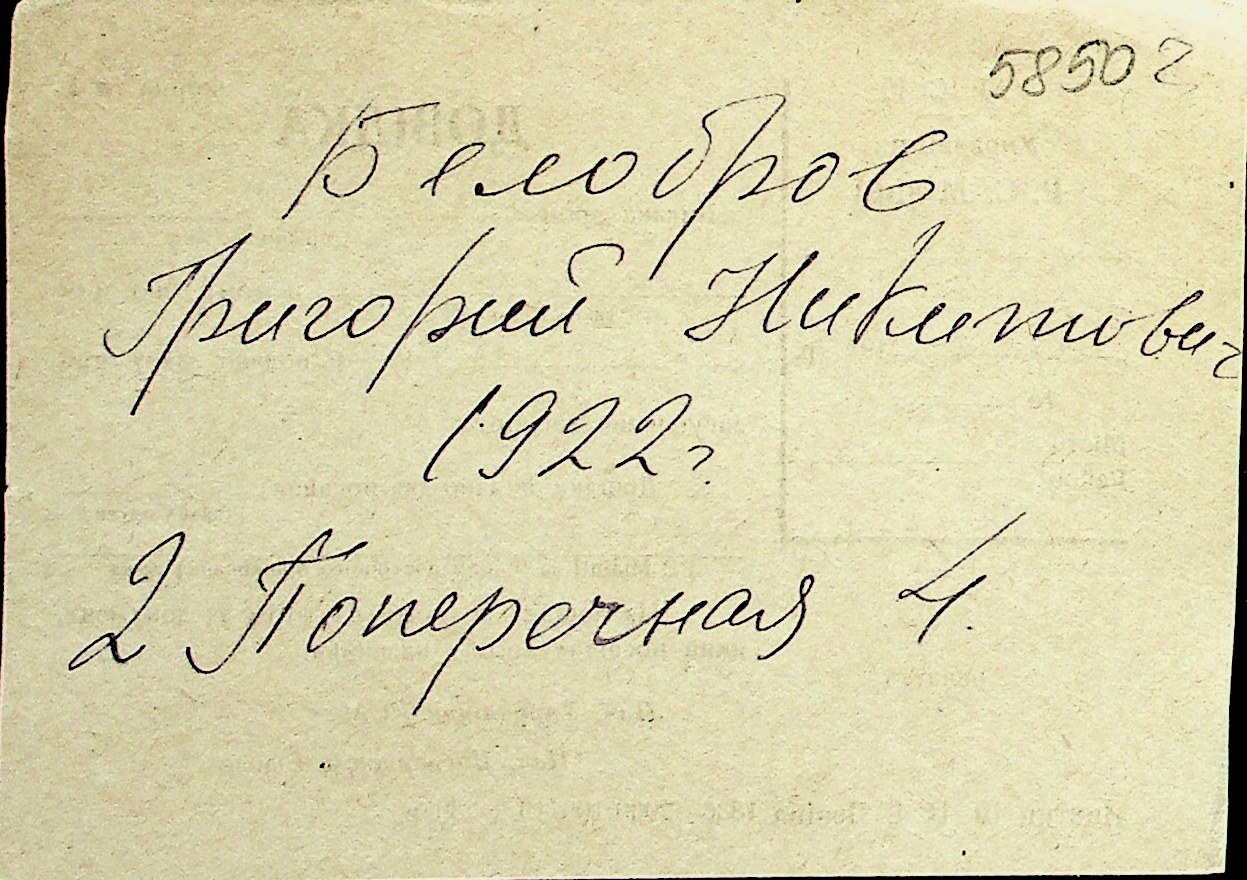 5850 г
Белобров
Григорий Никитович
1922 г
2 Поперечная 4.